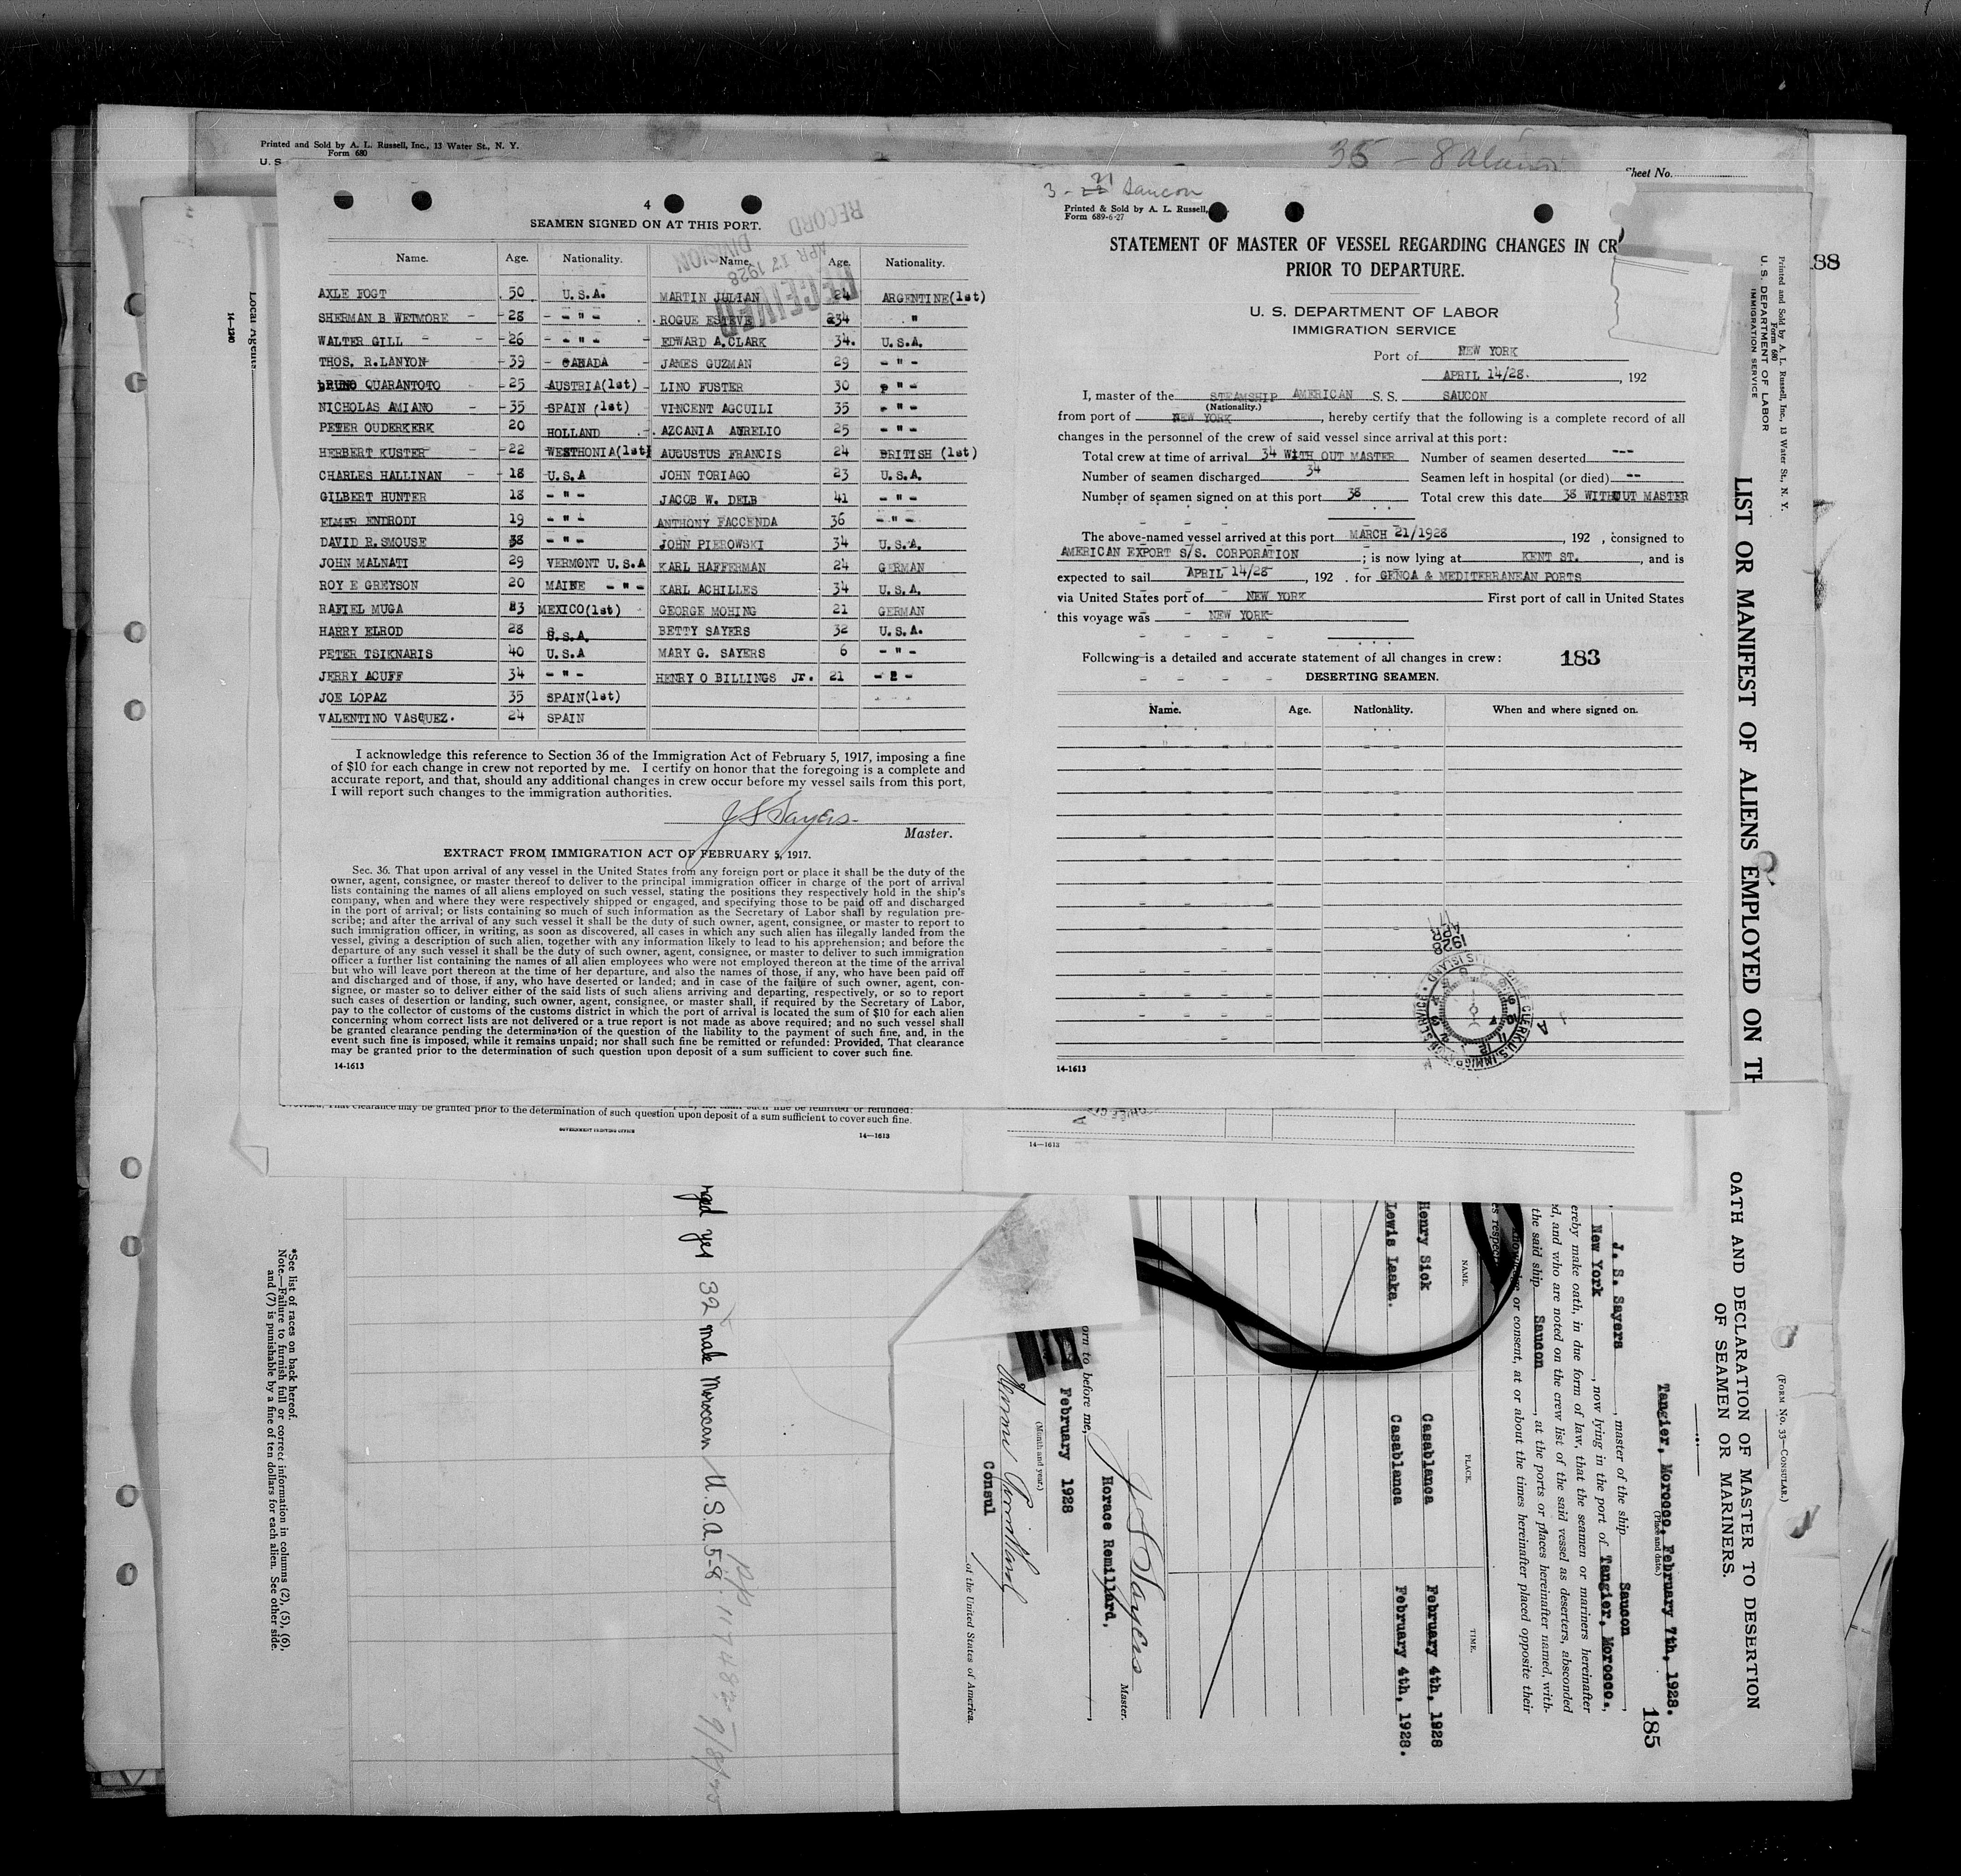 Printed and Sold by A. L. Russell, Inc., 13 Water St., N. Y.
Form 680
U. S
35 - 8
Sheet No.
188
Local Agents
14-1240
4
SEAMEN SIGNED ON AT THIS PORT.
RECEIVED
APR 17 1928
RECORD DIVISION
Name. Age. Nationality. Name. Age. Nationality.
AXLE FOGT 50 U.S.A. MARTIN JULIAN 24 ARGENTINE(1st)
SHERMAN B WETMORE 28 - " - ROGUE ESTEVE 34 "
WALTER GILL 26 - " - EDWARD A.CLARK 34. U.S.A.
THOS. R.LANYON 39 CANADA JAMES GUZMAN 29 - " -
BRUNO QUARANTOTO 25 AUSTRIA(1st) LINO FUSTER 30 " -
NICHOLAS AMIANO 35 SPAIN (1st) VINCENT AGCUILI 35 - " -
PETER OUDERKERK 20 HOLLAND AZCANIA AURELIO 25 - " -
HERBERT KUSTER 22 WESTHONIA(1st) AUGUSTUS FRANCIS 24 BRITISH (1st)
CHARLES HALLINAN 18 U.S.A JOHN TORIAGO 23 U.S.A.
GILBERT HUNTER 18 - " - JACOB W. DELB 41 - " -
ELMER ENDRODI 19 - " - ANTHONY FACCENDA 36 - " -
DAVID R.SMOUSE 38 - " - JOHN PIEROWSKI 34 U.S.A.
JOHN MALNATI 29 VERMONT U.S.A KARL HAFFERMAN 24 GERMAN
ROY E GREYSON 20 MAINE - " - KARL ACHILLES 34 U.S.A.
RAFIEL MUGA 3 MEXICO(1st) GEORGE MOHING 21 GERMAN
HARRY ELROD 28 U.S.A. BETTY SAYERS 32 U.S.A.
PETER TSIKNARIS 40 U.S.A MARY G. SAYERS 6 - " -
JERRY ACUFF 34 - " - HENRY O BILLINGS Jr. 21 - " -
JOE LOPAZ 35 SPAIN(1st)
VALENTINO VASQUEZ. 24 SPAIN
I acknowledge this reference to Section 36 of the Immigration Act of February 5, 1917, imposing a fine
of $10 for each change in crew not reported by me. I certify on honor that the foregoing is a complete and
accurate report, and that, should any additional changes in crew occur before my vessel sails from this port,
I will report such changes to the immigration authorities.
J S Sayers
Master.
EXTRACT FROM IMMIGRATION ACT OF FEBRUARY 5, 1917.
Sec. 36. That upon arrival of any vessel in the United States from any foreign port or place it shall be the duty of the
owner, agent, consignee, or master thereof to deliver to the principal immigration officer in charge of the port of arrival
lists containing the names of all aliens employed on such vessel, stating the positions they respectively hold in the ship's
company, when and where they were respectively shipped or engaged, and specifying those to be paid off and discharged
in the port of arrival; or lists containing so much of such information as the Secretary of Labor shall by regulation pre-
scribe; and after the arrival of any such vessel it shall be the duty of such owner, agent, consignee, or master to report to
such immigration officer, in writing, as soon as discovered, all cases in which any such alien has illegally landed from the
vessel, giving a description of such alien, together with any information likely to lead to his apprehension; and before the
departure of any such vessel it shall be the duty of such owner, agent, consignee, or master to deliver to such immigration
officer a further list containing the names of all alien employees who were not employed thereon at the time of the arrival
but who will leave port thereon at the time of her departure, and also the names of those, if any, who have been paid off
and discharged and of those, if any, who have deserted or landed; and in case of the failure of such owner, agent, con-
signee, or master so to deliver either of the said lists of such aliens arriving and departing, respectively, or so to report
such cases of desertion or landing, such owner, agent, consignee, or master shall, if required by the Secretary of Labor,
pay to the collector of customs of the customs district in which the port of arrival is located the sum of $10 for each alien
concerning whom correct lists are not delivered or a true report is not made as above required; and no such vessel shall
be granted clearance pending the determination of the question of the liability to the payment of such fine, and, in the
event such fine is imposed, while it remains unpaid; nor shall such fine be remitted or refunded: Provided, That clearance
may be granted prior to the determination of such question upon deposit of a sum sufficient to cover such fine.
14-1613
3 - 21 Saucon
Printed & Sold by A. L. Russell,
Form 689-6-27
STATEMENT OF MASTER OF VESSEL REGARDING CHANGES IN CR
PRIOR TO DEPARTURE.
U. S. DEPARTMENT OF LABOR
IMMIGRATION SERVICE
Port of NEW YORK
APRIL 14/28. , 192
I, master of the STEAMSHIP AMERICAN S. S. SAUCON
(Nationality.)
from port of NEW YORK, hereby certify that the following is a complete record of all
changes in the personnel of the crew of said vessel since arrival at this port:
Total crew at time of arrival 34 WITH OUT MASTER Number of seamen deserted ---
Number of seamen discharged 34 Seamen left in hospital (or died) --
Number of seamen signed on at this port 38 Total crew this date 38 WITHOUT MASTER
The above-named vessel arrived at this port MARCH 21/1928 , 192 , consigned to
AMERICAN EXPORT S/S. CORPORATION ; is now lying at KENT ST. , and is
expected to sail APRIL 14/28 , 192 . for GENOA & MEDITERRANEAN PORTS
via United States port of NEW YORK First port of call in United States
this voyage was NEW YORK
Following is a detailed and accurate statement of all changes in crew: 183
DESERTING SEAMEN.
Name. Age. Nationality. When and where signed on.
APR 17 1928
CHIEF CLERK U.S. IMMIGRATION SERVICE ELLIS ISLAND
14-1613
Printed and Sold by A. L. Russell, Inc., 13 Water St., N. Y.
Form 680
U. S. DEPARTMENT OF LABOR
IMMIGRATION SERVICE
LIST OR MANIFEST OF ALIENS EMPLOYED ON TH
That clearance may be granted prior to the determination of such question upon deposit of a sum sufficient to cover such fine.
GOVERNMENT PRINTING OFFICE
14-1613
14-1613
*See list of races on back hereof.
Note.—Failure to furnish full or correct information in columns (2), (5), (6),
and (7) is punishable by a fine of ten dollars for each alien. See other side.
rged yes 32 male Moroccan U.S.A. 5-8
(FORM No. 33—CONSULAR.)
OATH AND DECLARATION OF MASTER TO DESERTION
OF SEAMEN OR MARINERS.
Tangier, Morocco, February 7th, 1928.
(Place and date.)
185
J. S. Sayers, master of the ship Saucon,
New York, now lying in the port of Tangier, Morocco,
ereby make oath, in due form of law, that the seamen or mariners hereinafter
d, and who are noted on the crew list of the said vessel as deserters, absconded
the said ship Saucon, at the ports or places hereinafter named, with-
knowledge or consent, at or about the times hereinafter placed opposite their
es respec
NAME. PLACE. TIME.
Henry Sick Casablanca February 4th, 1928
Lewis Laaka. Casablanca February 4th, 1928.
J S Sayers
Master.
orn to before me, Horace Remillard,
February 1928
(Month and year.)
Horace Remillard
Consul of the United States of America.